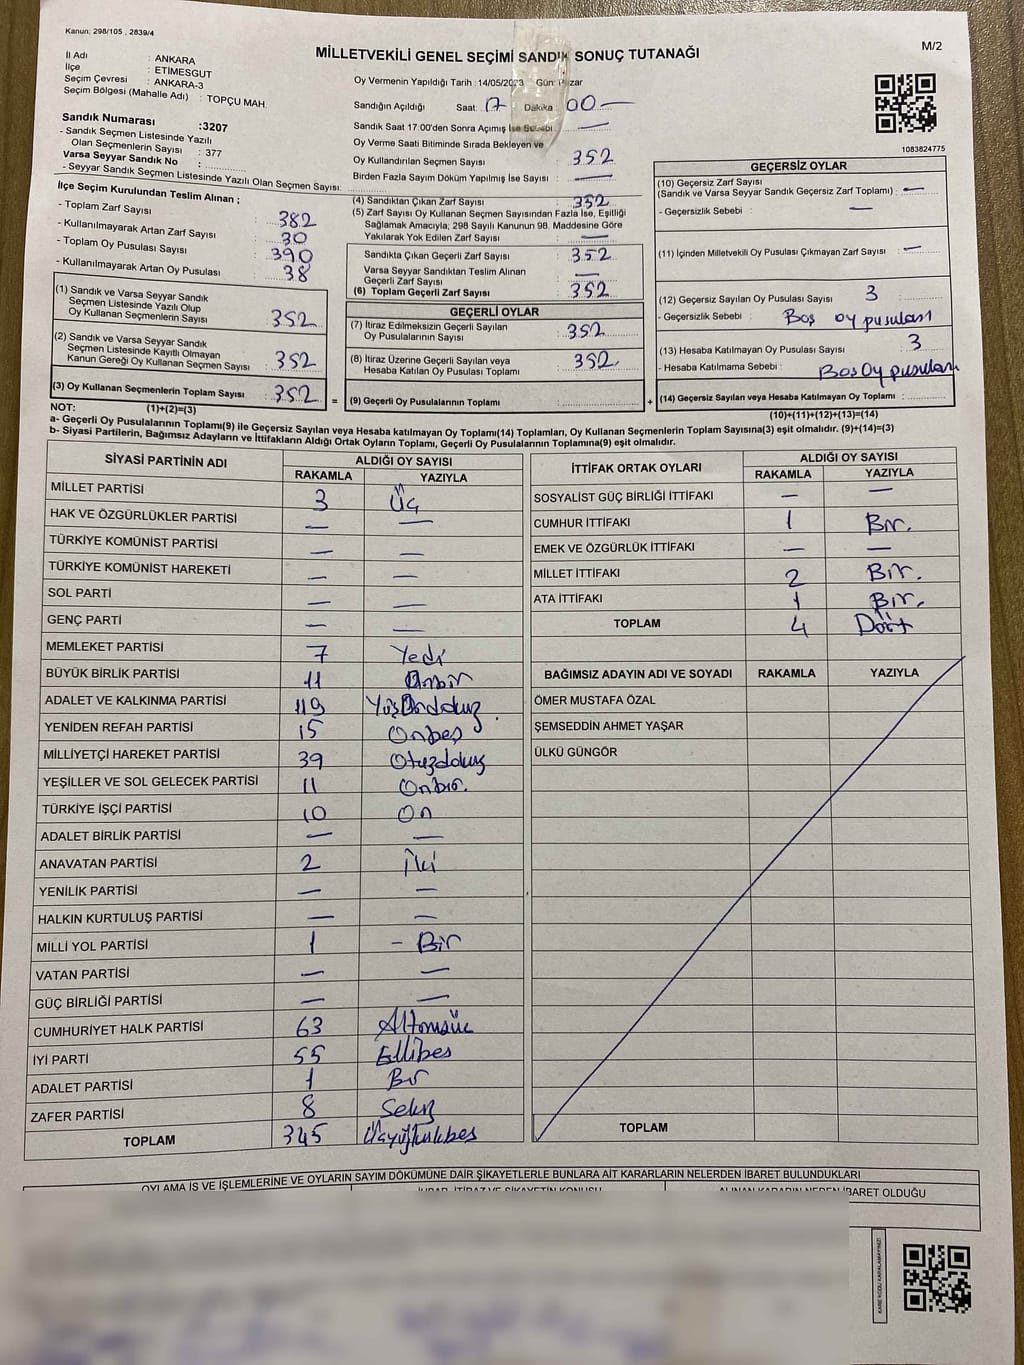 Kanun: 298/105 , 2839/4
M/2
MİLLETVEKİLİ GENEL SEÇİMİ SANDIK SONUÇ TUTANAĞI
İl Adı : ANKARA
İlçe : ETİMESGUT
Seçim Çevresi : ANKARA-3
Seçim Bölgesi (Mahalle Adı) : TOPÇU MAH.
Sandık Numarası :3207
- Sandık Seçmen Listesinde Yazılı
Olan Seçmenlerin Sayısı : 377
Varsa Seyyar Sandık No :
- Seyyar Sandık Seçmen Listesinde Yazılı Olan Seçmen Sayısı:
Oy Vermenin Yapıldığı Tarih : 14/05/2023 Gün: Pazar
Sandığın Açıldığı Saat: 17 Dakika : 00 —
Sandık Saat 17:00'den Sonra Açımış İse Sebebi : —
Oy Verme Saati Bitiminde Sırada Bekleyen ve
Oy Kullandırılan Seçmen Sayısı : 352
Birden Fazla Sayım Döküm Yapılmış İse Sayısı : —
1083824775
İlçe Seçim Kurulundan Teslim Alınan ;
- Toplam Zarf Sayısı : 382
- Kullanılmayarak Artan Zarf Sayısı : 30
- Toplam Oy Pusulası Sayısı : 390
- Kullanılmayarak Artan Oy Pusulası : 38
(1) Sandık ve Varsa Seyyar Sandık
Seçmen Listesinde Yazılı Olup
Oy Kullanan Seçmenlerin Sayısı : 352
(2) Sandık ve Varsa Seyyar Sandık
Seçmen Listesinde Kayıtlı Olmayan
Kanun Gereği Oy Kullanan Seçmen Sayısı : 352
(3) Oy Kullanan Seçmenlerin Toplam Sayısı : 352
(1)+(2)=(3)
(4) Sandıktan Çıkan Zarf Sayısı : 352
(5) Zarf Sayısı Oy Kullanan Seçmen Sayısından Fazla İse, Eşitliği
Sağlamak Amacıyla; 298 Sayılı Kanunun 98. Maddesine Göre
Yakılarak Yok Edilen Zarf Sayısı : —
Sandıkta Çıkan Geçerli Zarf Sayısı : 352
Varsa Seyyar Sandıktan Teslim Alınan
Geçerli Zarf Sayısı : —
(6) Toplam Geçerli Zarf Sayısı : 352
GEÇERLİ OYLAR
(7) İtiraz Edilmeksizin Geçerli Sayılan
Oy Pusulasının Sayısı : 352
(8) İtiraz Üzerine Geçerli Sayılan veya
Hesaba Katılan Oy Pusulası Toplamı : 352
= (9) Geçerli Oy Pusulalarının Toplamı :
GEÇERSİZ OYLAR
(10) Geçersiz Zarf Sayısı
(Sandık ve Varsa Seyyar Sandık Geçersiz Zarf Toplamı) : —
- Geçersizlik Sebebi : —
(11) İçinden Milletvekili Oy Pusulası Çıkmayan Zarf Sayısı : —
(12) Geçersiz Sayılan Oy Pusulası Sayısı : 3
- Geçersizlik Sebebi : Boş oy pusulası
(13) Hesaba Katılmayan Oy Pusulası Sayısı : 3
- Hesaba Katılmama Sebebi : Boş Oy pusulası
+ (14) Geçersiz Sayılan veya Hesaba Katılmayan Oy Toplamı :
(10)+(11)+(12)+(13)=(14)
NOT:
a- Geçerli Oy Pusulalarının Toplamı(9) ile Geçersiz Sayılan veya Hesaba katılmayan Oy Toplamı(14) Toplamları, Oy Kullanan Seçmenlerin Toplam Sayısına(3) eşit olmalıdır. (9)+(14)=(3)
b- Siyasi Partilerin, Bağımsız Adayların ve İttifakların Aldığı Ortak Oyların Toplamı, Geçerli Oy Pusulalarının Toplamına(9) eşit olmalıdır.
SİYASİ PARTİNİN ADI ALDIĞI OY SAYISI
RAKAMLA YAZIYLA
MİLLET PARTİSİ 3 Üç
HAK VE ÖZGÜRLÜKLER PARTİSİ — —
TÜRKİYE KOMÜNİST PARTİSİ — —
TÜRKİYE KOMÜNİST HAREKETİ — —
SOL PARTİ — —
GENÇ PARTİ — —
MEMLEKET PARTİSİ 7 Yedi
BÜYÜK BİRLİK PARTİSİ 11 Onbir
ADALET VE KALKINMA PARTİSİ 119 YüzOndokuz
YENİDEN REFAH PARTİSİ 15 Onbeş
MİLLİYETÇİ HAREKET PARTİSİ 39 Otuzdokuz
YEŞİLLER VE SOL GELECEK PARTİSİ 11 Onbir.
TÜRKİYE İŞÇİ PARTİSİ 10 On
ADALET BİRLİK PARTİSİ — —
ANAVATAN PARTİSİ 2 İki
YENİLİK PARTİSİ — —
HALKIN KURTULUŞ PARTİSİ — —
MİLLİ YOL PARTİSİ 1 - Bir
VATAN PARTİSİ — —
GÜÇ BİRLİĞİ PARTİSİ — —
CUMHURİYET HALK PARTİSİ 63 Altmışüç
İYİ PARTİ 55 Ellibeş
ADALET PARTİSİ 1 Bir
ZAFER PARTİSİ 8 Sekiz
TOPLAM 345 Üçyüzkırkbeş
İTTİFAK ORTAK OYLARI ALDIĞI OY SAYISI
RAKAMLA YAZIYLA
SOSYALİST GÜÇ BİRLİĞİ İTTİFAKI — —
CUMHUR İTTİFAKI 1 Bir.
EMEK VE ÖZGÜRLÜK İTTİFAKI — —
MİLLET İTTİFAKI 2 Bir.
ATA İTTİFAKI 1 Bir.
TOPLAM 4 Dört
BAĞIMSIZ ADAYIN ADI VE SOYADI RAKAMLA YAZIYLA
ÖMER MUSTAFA ÖZAL
ŞEMSEDDİN AHMET YAŞAR
ÜLKÜ GÜNGÖR
TOPLAM
OYLAMA İŞ VE İŞLEMLERİNE VE OYLARIN SAYIM DÖKÜMÜNE DAİR ŞİKAYETLERLE BUNLARA AİT KARARLARIN NELERDEN İBARET BULUNDUKLARI
İHBAR, İTİRAZ VE ŞİKAYETİN KONUSU ALINAN KARARIN NEDEN İBARET OLDUĞU
KARE KODU KARALAMAYINIZ!